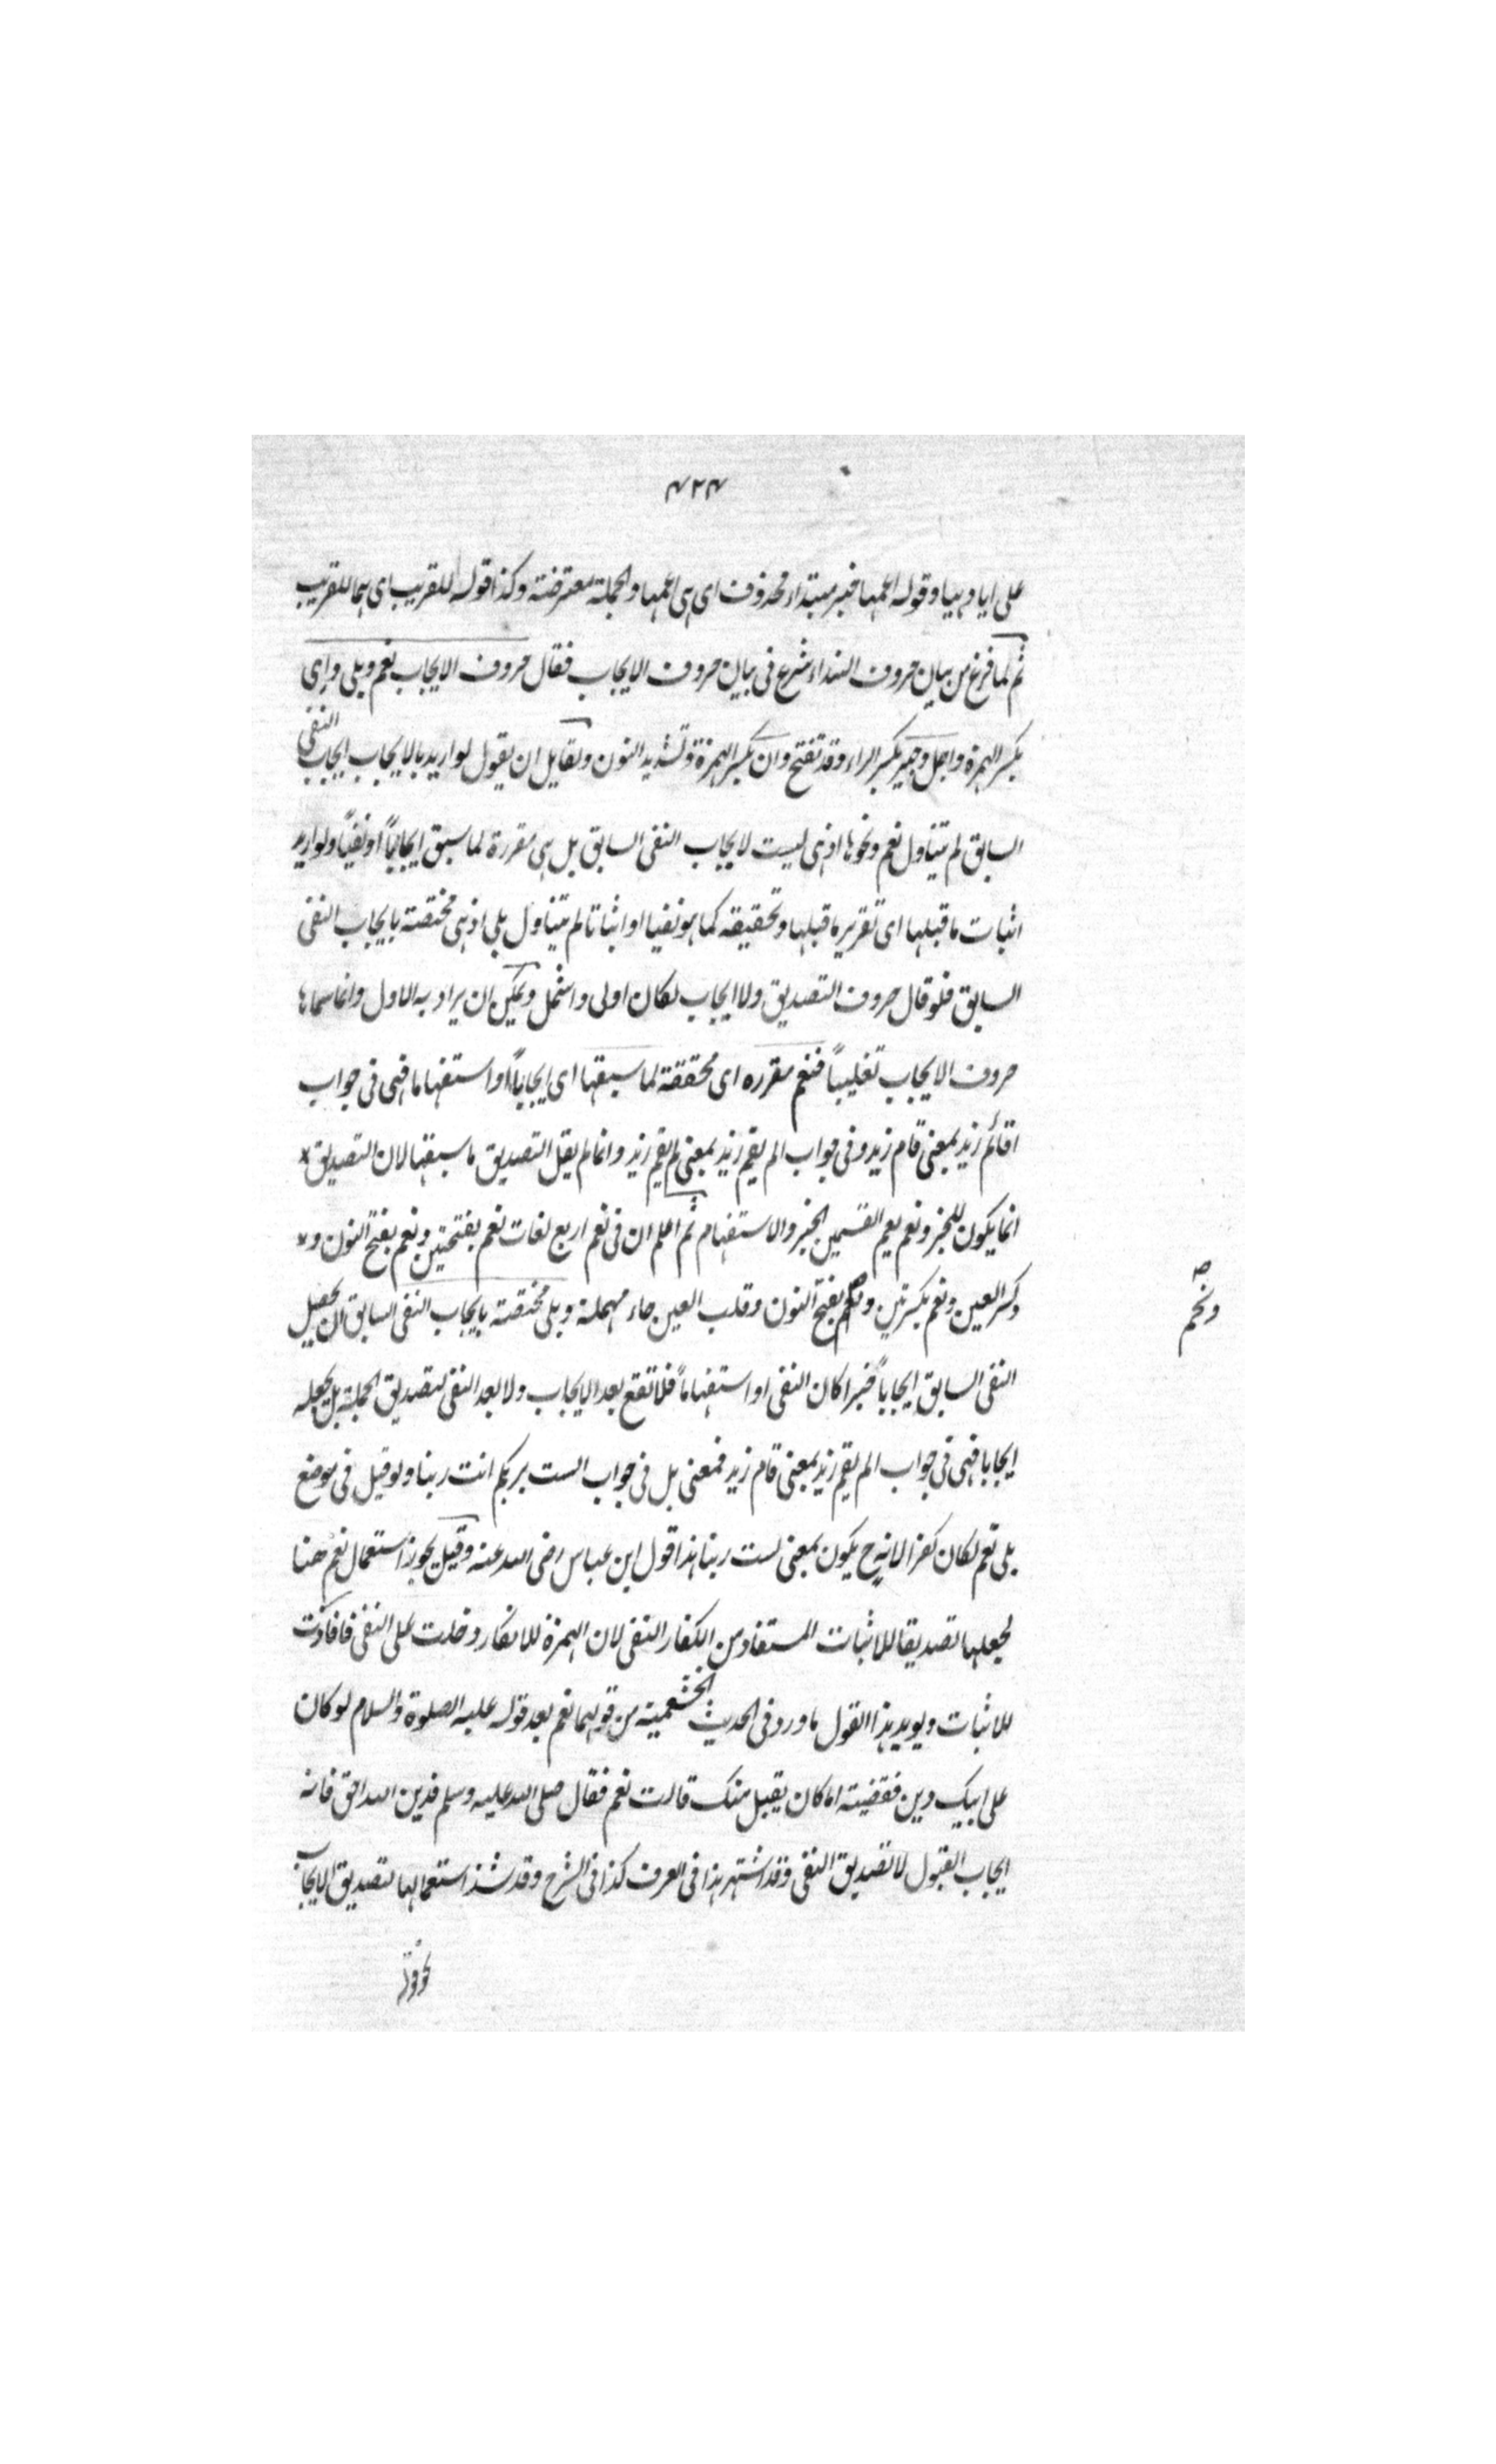 ٤٢٤
على ايا وهيا وقوله اعمها فخبر مبتداء محذوف اى هى اعمها والجملة معترضة وكذا قوله للقريب اى هما للقريب
ثم لما فرغ من بيان حروف النداء شرع فى بيان حروف الايجاب فقال حروف الايجاب نعم وبلى واى
بكسر الهمزة واجل وجير بكسر الراء وقد تفتح وان بكسر الهمزة وتشديد النون ولقايل ان يقول لو اريد بالايجاب ايجاب النفى
السابق لم يتناول نعم ونحوها اذ هى ليست لايجاب النفى السابق بل هى مقررة لما سبق ايجاباً او نفياً ولو اريد
اثبات ما قبلها اى تقرير ما قبلها وتحقيقه كما هو نفيا او اثباتا لم يتناول بلى اذ هى مختصة بايجاب النفى
السابق فلو قال حروف التصديق والايجاب لكان اولى واشمل ويمكن ان يراد به الاول وانما سماها
حروف الايجاب تغليباً فنعم مقرره اى محققة لما سبقها اى ايجاباً او استفهاما فهى فى جواب
اقائم زيد بمعنى قام زيد وفى جواب الم يقم زيد بمعنى لم يقم زيد وانما لم يقل التصديق ما سبقها لان التصديق
انما يكون للخبر ونعم يعم القسمين الخبر والاستفهام ثم اعلم ان فى نعم اربع لغات نعم بفتحتين ونعم بفتح النون و
وكسر العين ونعم بكسرتين ونحم بفتح النون وقلب العين حاء مهملة وبلى مختصة بايجاب النفى السابق اى يجعل
ونحم صح
النفى السابق ايجاباً خبرا كان النفى او استفهاماً فلا تقع بعد الايجاب ولا بعد النفى لتصديق الجملة بل يجعله
ايجابا فهى فى جواب الم يقم زيد بمعنى قام زيد فمعنى بل فى جواب الست بربكم انت ربنا ولو قيل فى موضع
بلى نعم لكان كفرا لانه ح يكون بمعنى لست ربنا هذا قول ابن عباس رضى الله عنه وقيل يجوز استعمال نعم ههنا
لجعلها تصديقا للاثبات المستفاد من انكار النفى لان الهمزة للانكار دخلت على النفى فافادت
للاثبات ويويد هذا القول ما ورد فى الحديث الخثعمية من قولهما نعم بعد قوله عليه الصلوة والسلام لو كان
على ابيك دين فقضيته اما كان يقبل منك قالت نعم فقال صلى الله عليه وسلم فدين الله احق فانه
ايجاب القبول لا تصديق النفى وقد اشتهر هذا فى العرف كذا فى الشرح وقد شذ استعمالها لتصديق الايجاب
نحو قولك